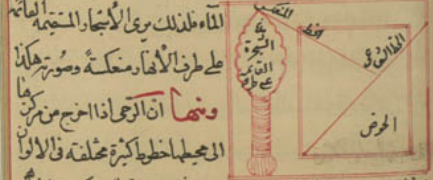 الماء فلذلك يرى الأشجار المستقيمة القائمة
على طرف الأنهار منعكسة وصورته هكذا
ومنها ان الرحى اذا اخرج من مركزها
الى محيطها خطوط كثيرة مختلفة في الالوان
الخط
المنعكس
الشجرة
القائمة
على طرف
الخط الشعاعي
الحوض